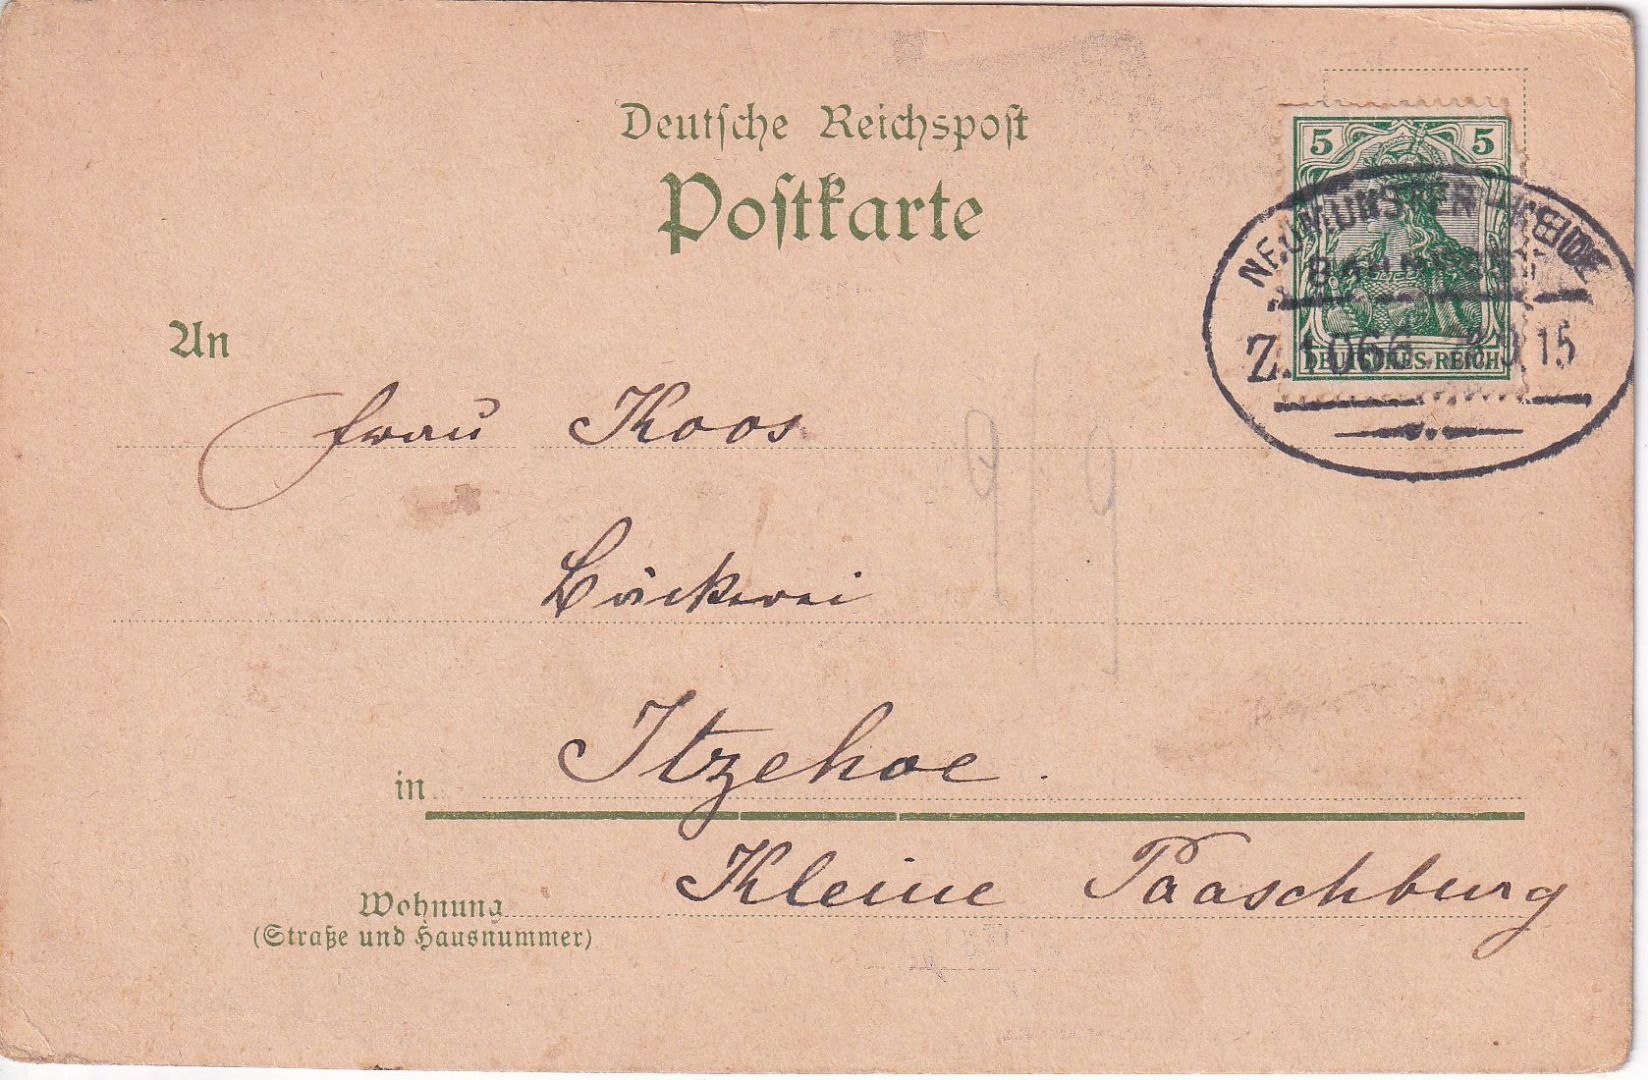 Deutsche Reichspost
Postkarte
5 5
NEUMÜNSTER HEIDE
DEUTSCHES REICH
Z. 1066 15
An
Frau Koos
Bäckerei
in Itzehoe.
Kleine Paaschburg
Wohnung
(Straße und Hausnummer)